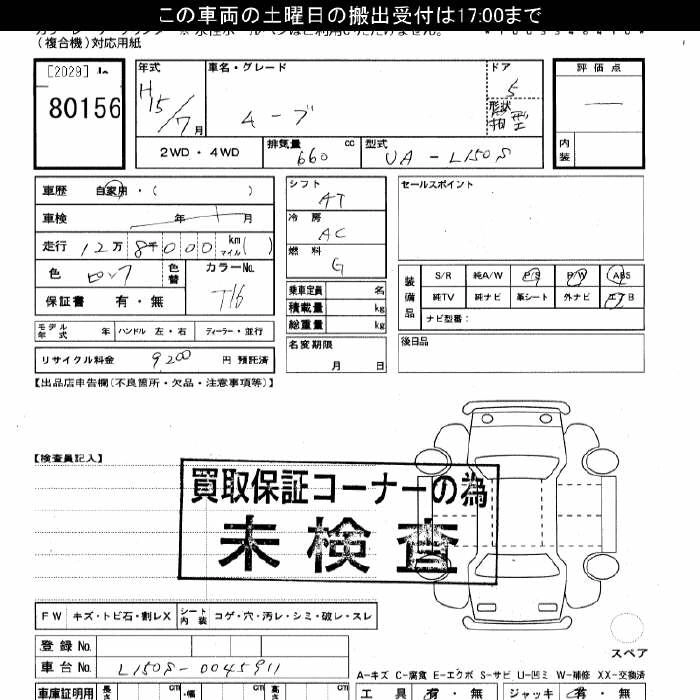 この車両の土曜日の搬出受付は17:00まで
(複合機)対応用紙
[2029]
80156
年式
H15/7月
車名・グレード
ムーブ
ドア
5
形状
箱型
評価点
内装
2WD・4WD
排気量 660 cc
型式 UA-L150S
車歴 自家用・( )
車検 年 月
走行 12万8千000 km マイル ( )
色
色替
カラーNo.
T16
保証書 有・無
モデル年式 年 ハンドル 左・右 ディーラー・並行
リサイクル料金 9200 円 預託済
シフト AT
冷房 AC
燃料 G
乗車定員 名
積載量 kg
総重量 kg
名変期限
月 日
セールスポイント
装備品
S/R 純A/W P/S P/W ABS
純TV 純ナビ 革シート 外ナビ エアB
ナビ型番:
後日品
【出品店申告欄(不良箇所・欠品・注意事項等)】
【検査員記入】
買取保証コーナーの為
未検査
FW キズ・トビ石・割レX シート内装 コゲ・穴・汚レ・シミ・破レ・スレ
スペア
登録No.
車台No. L150S-0045911
A-キズ C-腐食 E-エクボ S-サビ U-凹ミ W-補修 XX-交換済
車庫証明用 長さ cm 幅 cm 高さ cm
工具 有・無 ジャッキ 有・無